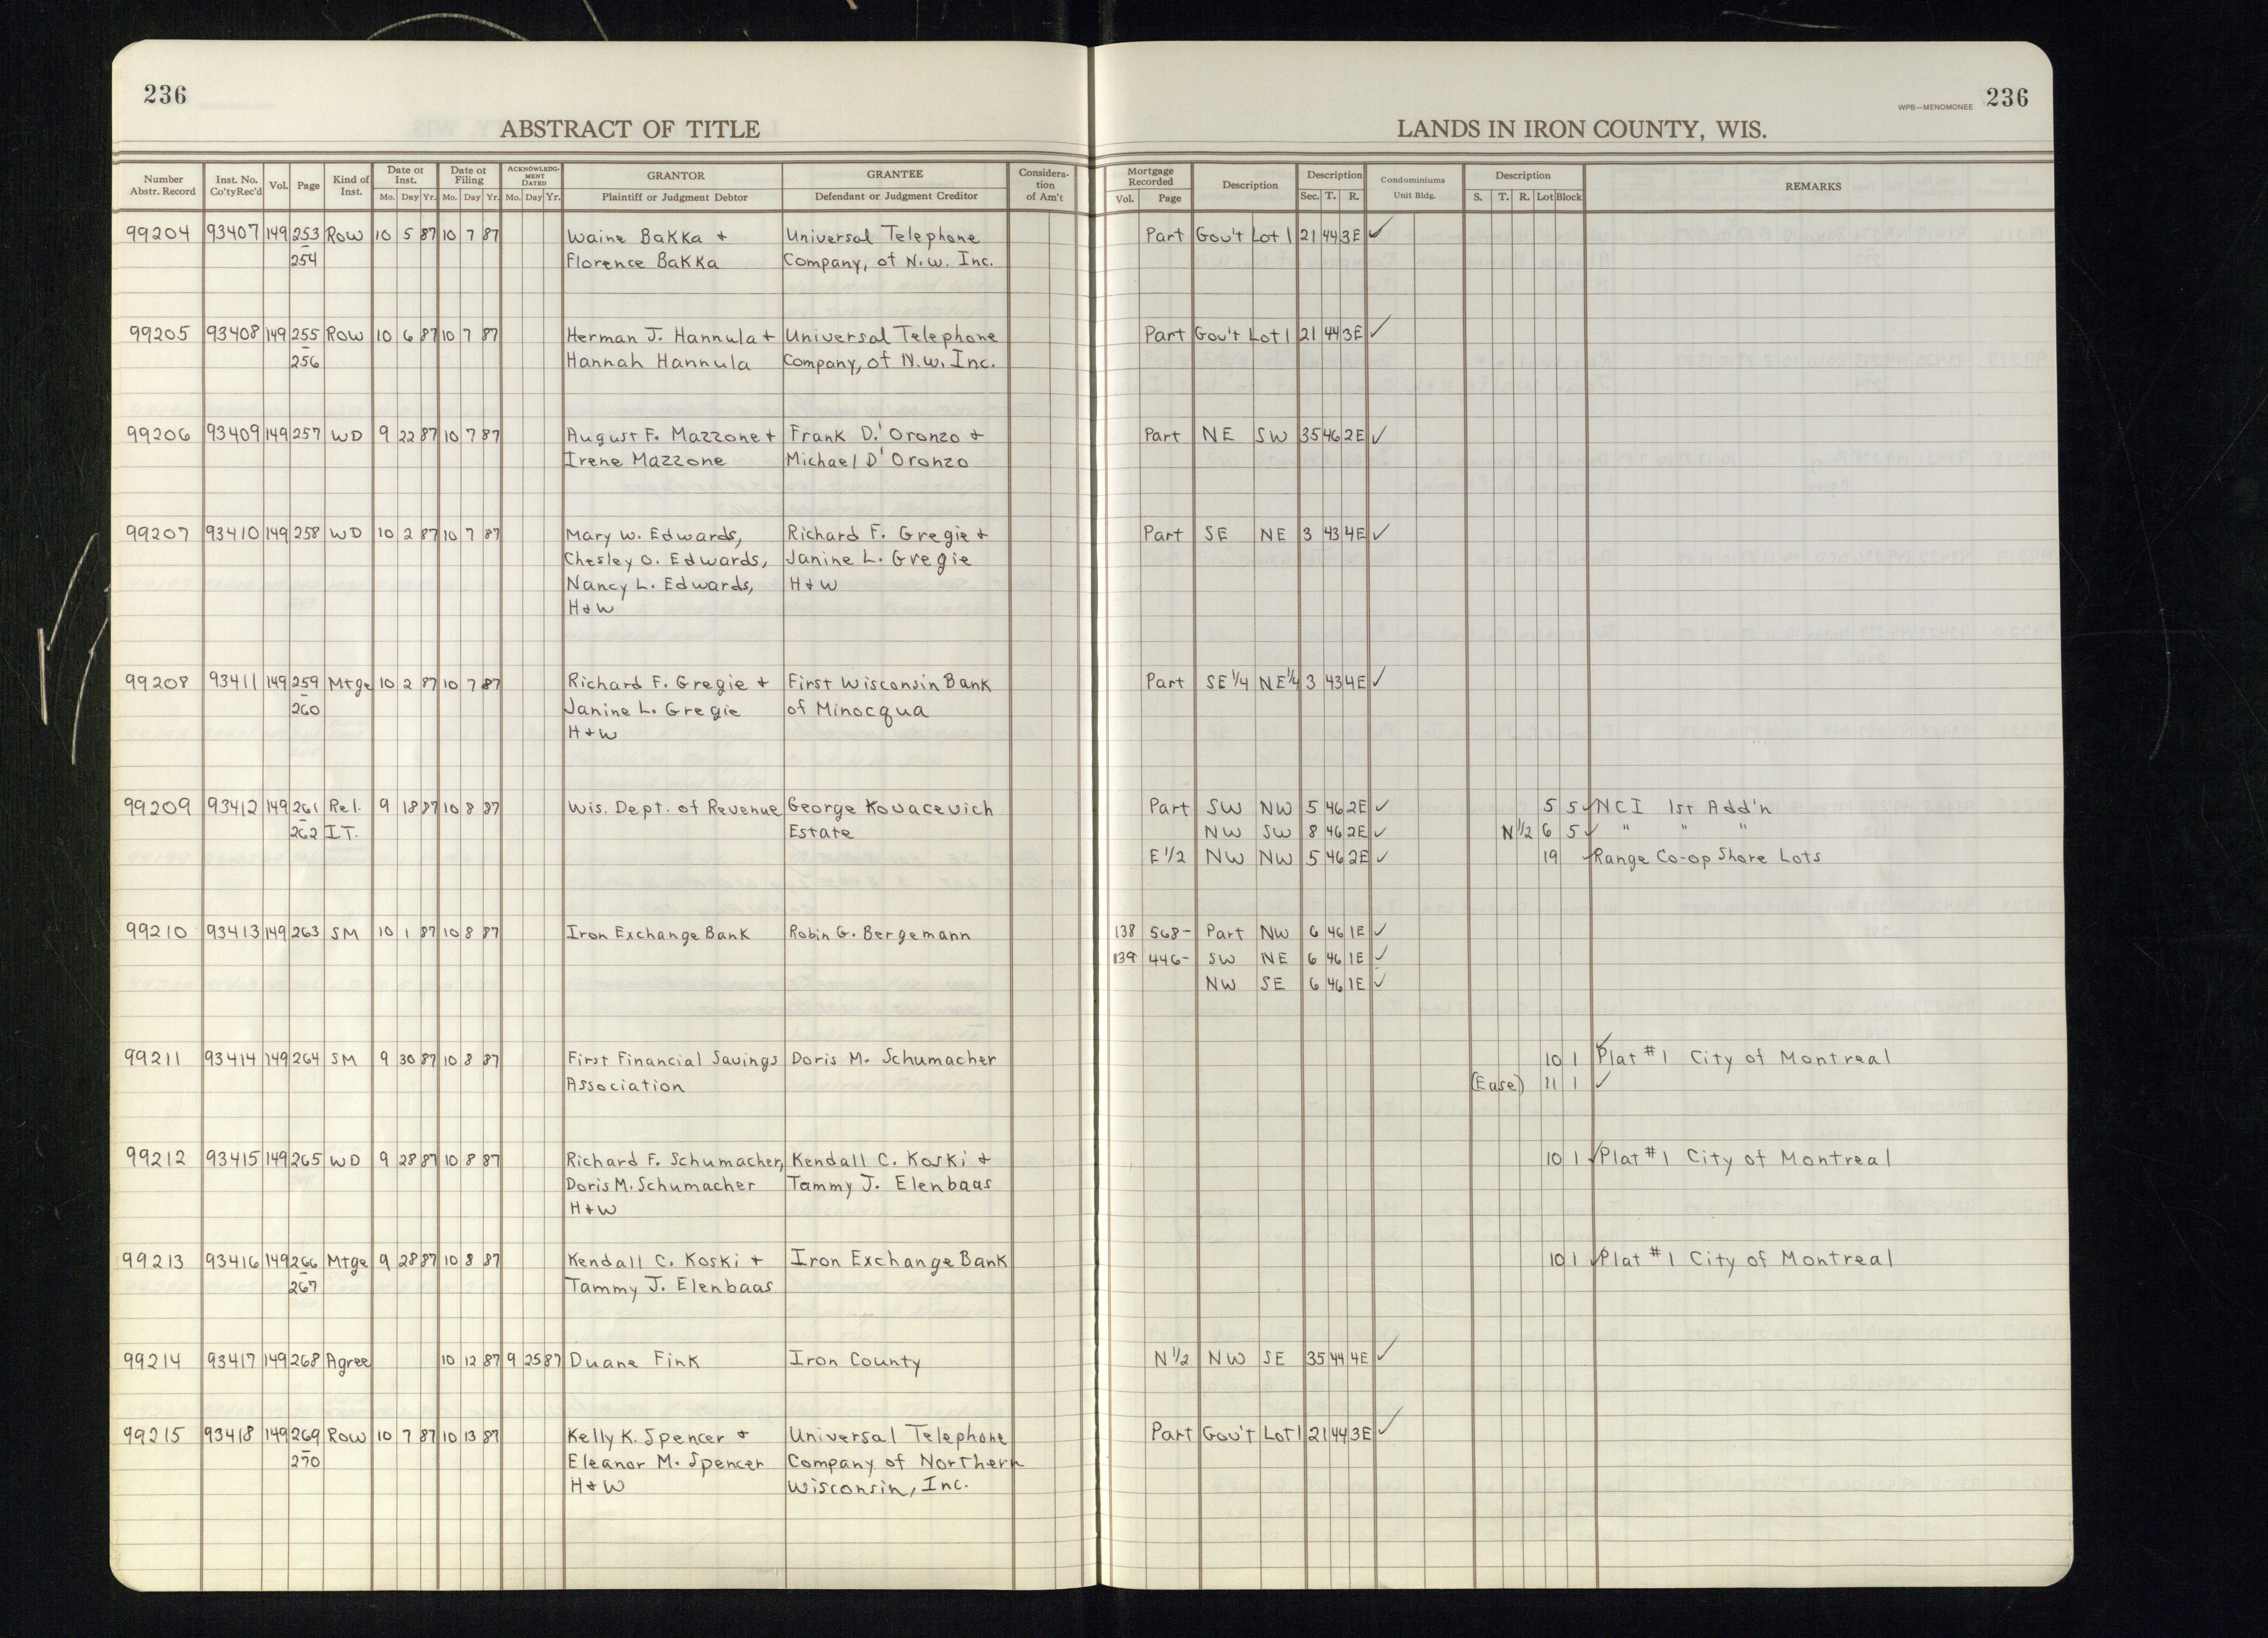 236
ABSTRACT OF TITLE
WPB—MENOMONEE 236
LANDS IN IRON COUNTY, WIS.
Number Abstr. Record | Inst. No. Co'tyRec'd | Vol. | Page | Kind of Inst. | Date of Inst. Mo. Day Yr. | Date of Filing Mo. Day Yr. | ACKNOWLEDGMENT DATED Mo. Day Yr. | GRANTOR Plaintiff or Judgment Debtor | GRANTEE Defendant or Judgment Creditor | Consideration of Am't | Mortgage Recorded Vol. Page | Description | Description Sec. T. R. | Condominiums Unit Bldg. | Description S. T. R. Lot Block | REMARKS
99204 93407 149 253 Row 10 5 87 10 7 87 Waine Bakka + Universal Telephone Part Gov't Lot 1 21 44 3E ✓
254 Florence Bakka Company, of N.W. Inc.
99205 93408 149 255 Row 10 6 87 10 7 87 Herman J. Hannula + Universal Telephone Part Gov't Lot 1 21 44 3E ✓
256 Hannah Hannula Company, of N.W. Inc.
99206 93409 149 257 WD 9 22 87 10 7 87 August F. Mazzone + Frank D.' Oronzo + Part NE SW 35 46 2E ✓
Irene Mazzone Michael D' Oronzo
99207 93410 149 258 WD 10 2 87 10 7 87 Mary W. Edwards, Richard F. Gregie + Part SE NE 3 43 4E ✓
Chesley O. Edwards, Janine L. Gregie
Nancy L. Edwards, H+W
H+W
99208 93411 149 259 Mtge 10 2 87 10 7 87 Richard F. Gregie + First Wisconsin Bank Part SE 1/4 NE 1/4 3 43 4E ✓
260 Janine L. Gregie of Minocqua
H+W
99209 93412 149 261 Rel. 9 18 87 10 8 87 Wis. Dept. of Revenue George Kovacevich Part SW NW 5 46 2E ✓ 5 5 ✓ NCI 1st Add'n
262 I.T. Estate NW SW 8 46 2E ✓ N 1/2 6 5 ✓ " " "
E 1/2 NW NW 5 46 2E ✓ 19 ✓ Range Co-op Shore Lots
99210 93413 149 263 SM 10 1 87 10 8 87 Iron Exchange Bank Robin G. Bergemann 138 568- Part NW 6 46 1E ✓
139 446- SW NE 6 46 1E ✓
NW SE 6 46 1E ✓
99211 93414 149 264 SM 9 30 87 10 8 87 First Financial Savings Doris M. Schumacher 10 1 ✓ Plat #1 City of Montreal
Association (Ease) 11 1 ✓
99212 93415 149 265 WD 9 28 87 10 8 87 Richard F. Schumacher, Kendall C. Koski + 10 1 ✓ Plat #1 City of Montreal
Doris M. Schumacher Tammy J. Elenbaas
H+W
99213 93416 149 266 Mtge 9 28 87 10 8 87 Kendall C. Koski + Iron Exchange Bank 10 1 ✓ Plat #1 City of Montreal
267 Tammy J. Elenbaas
99214 93417 149 268 Agree 10 12 87 9 25 87 Duane Fink Iron County N 1/2 NW SE 35 44 4E ✓
99215 93418 149 269 Row 10 7 87 10 13 87 Kelly K. Spencer + Universal Telephone Part Gov't Lot 1 21 44 3E ✓
270 Eleanor M. Spencer Company of Northern
H+W Wisconsin, Inc.